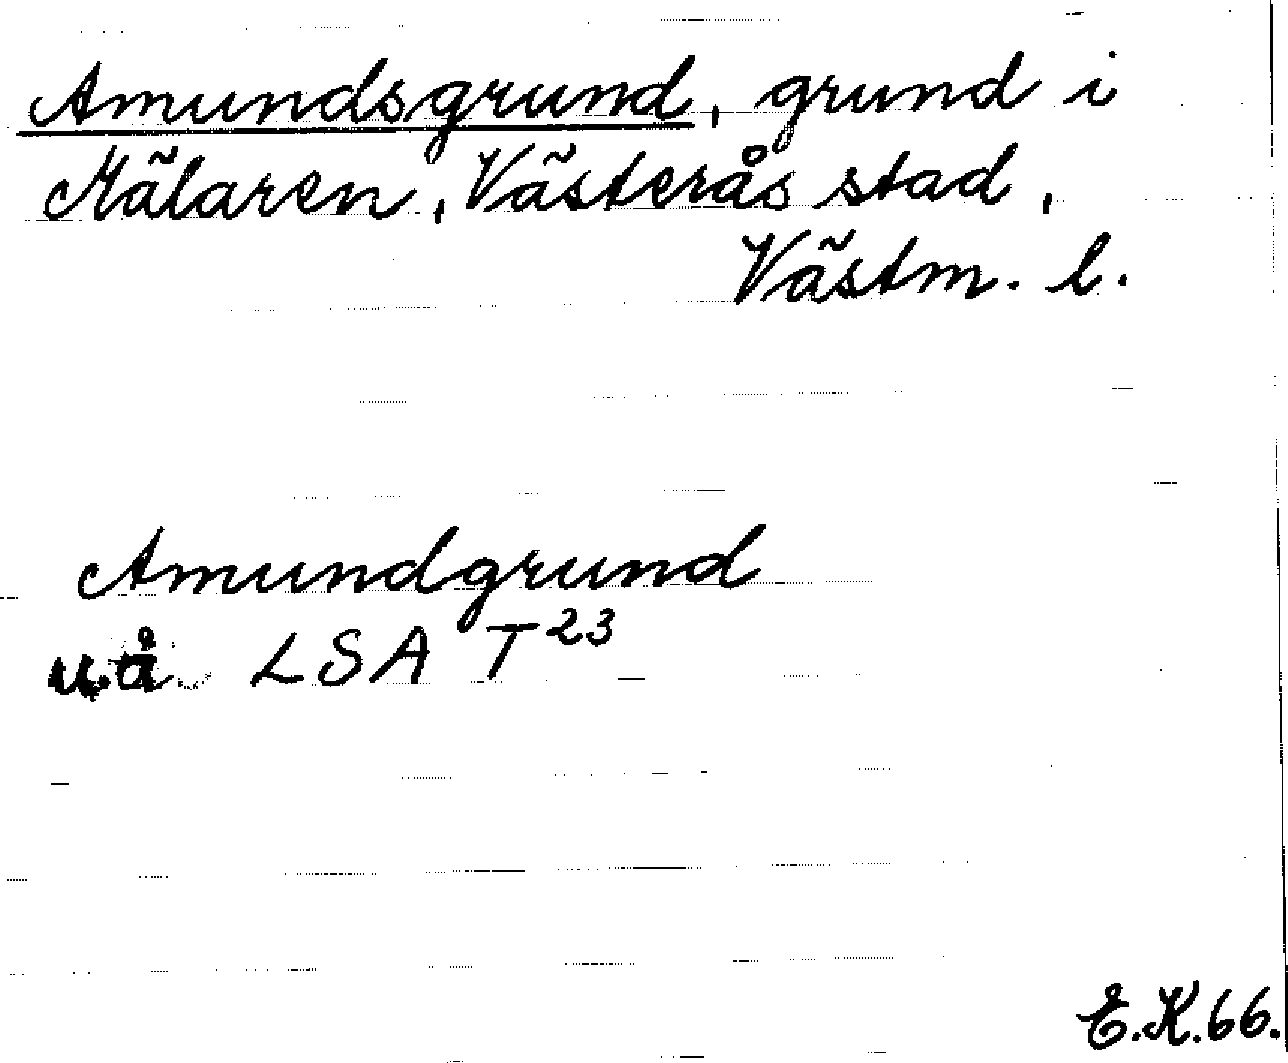 Amundsgrund, grund i
Mälaren, Västerås stad,
Västm. l.
Amundgrund
u.å. LSA T 23
E.K.66.